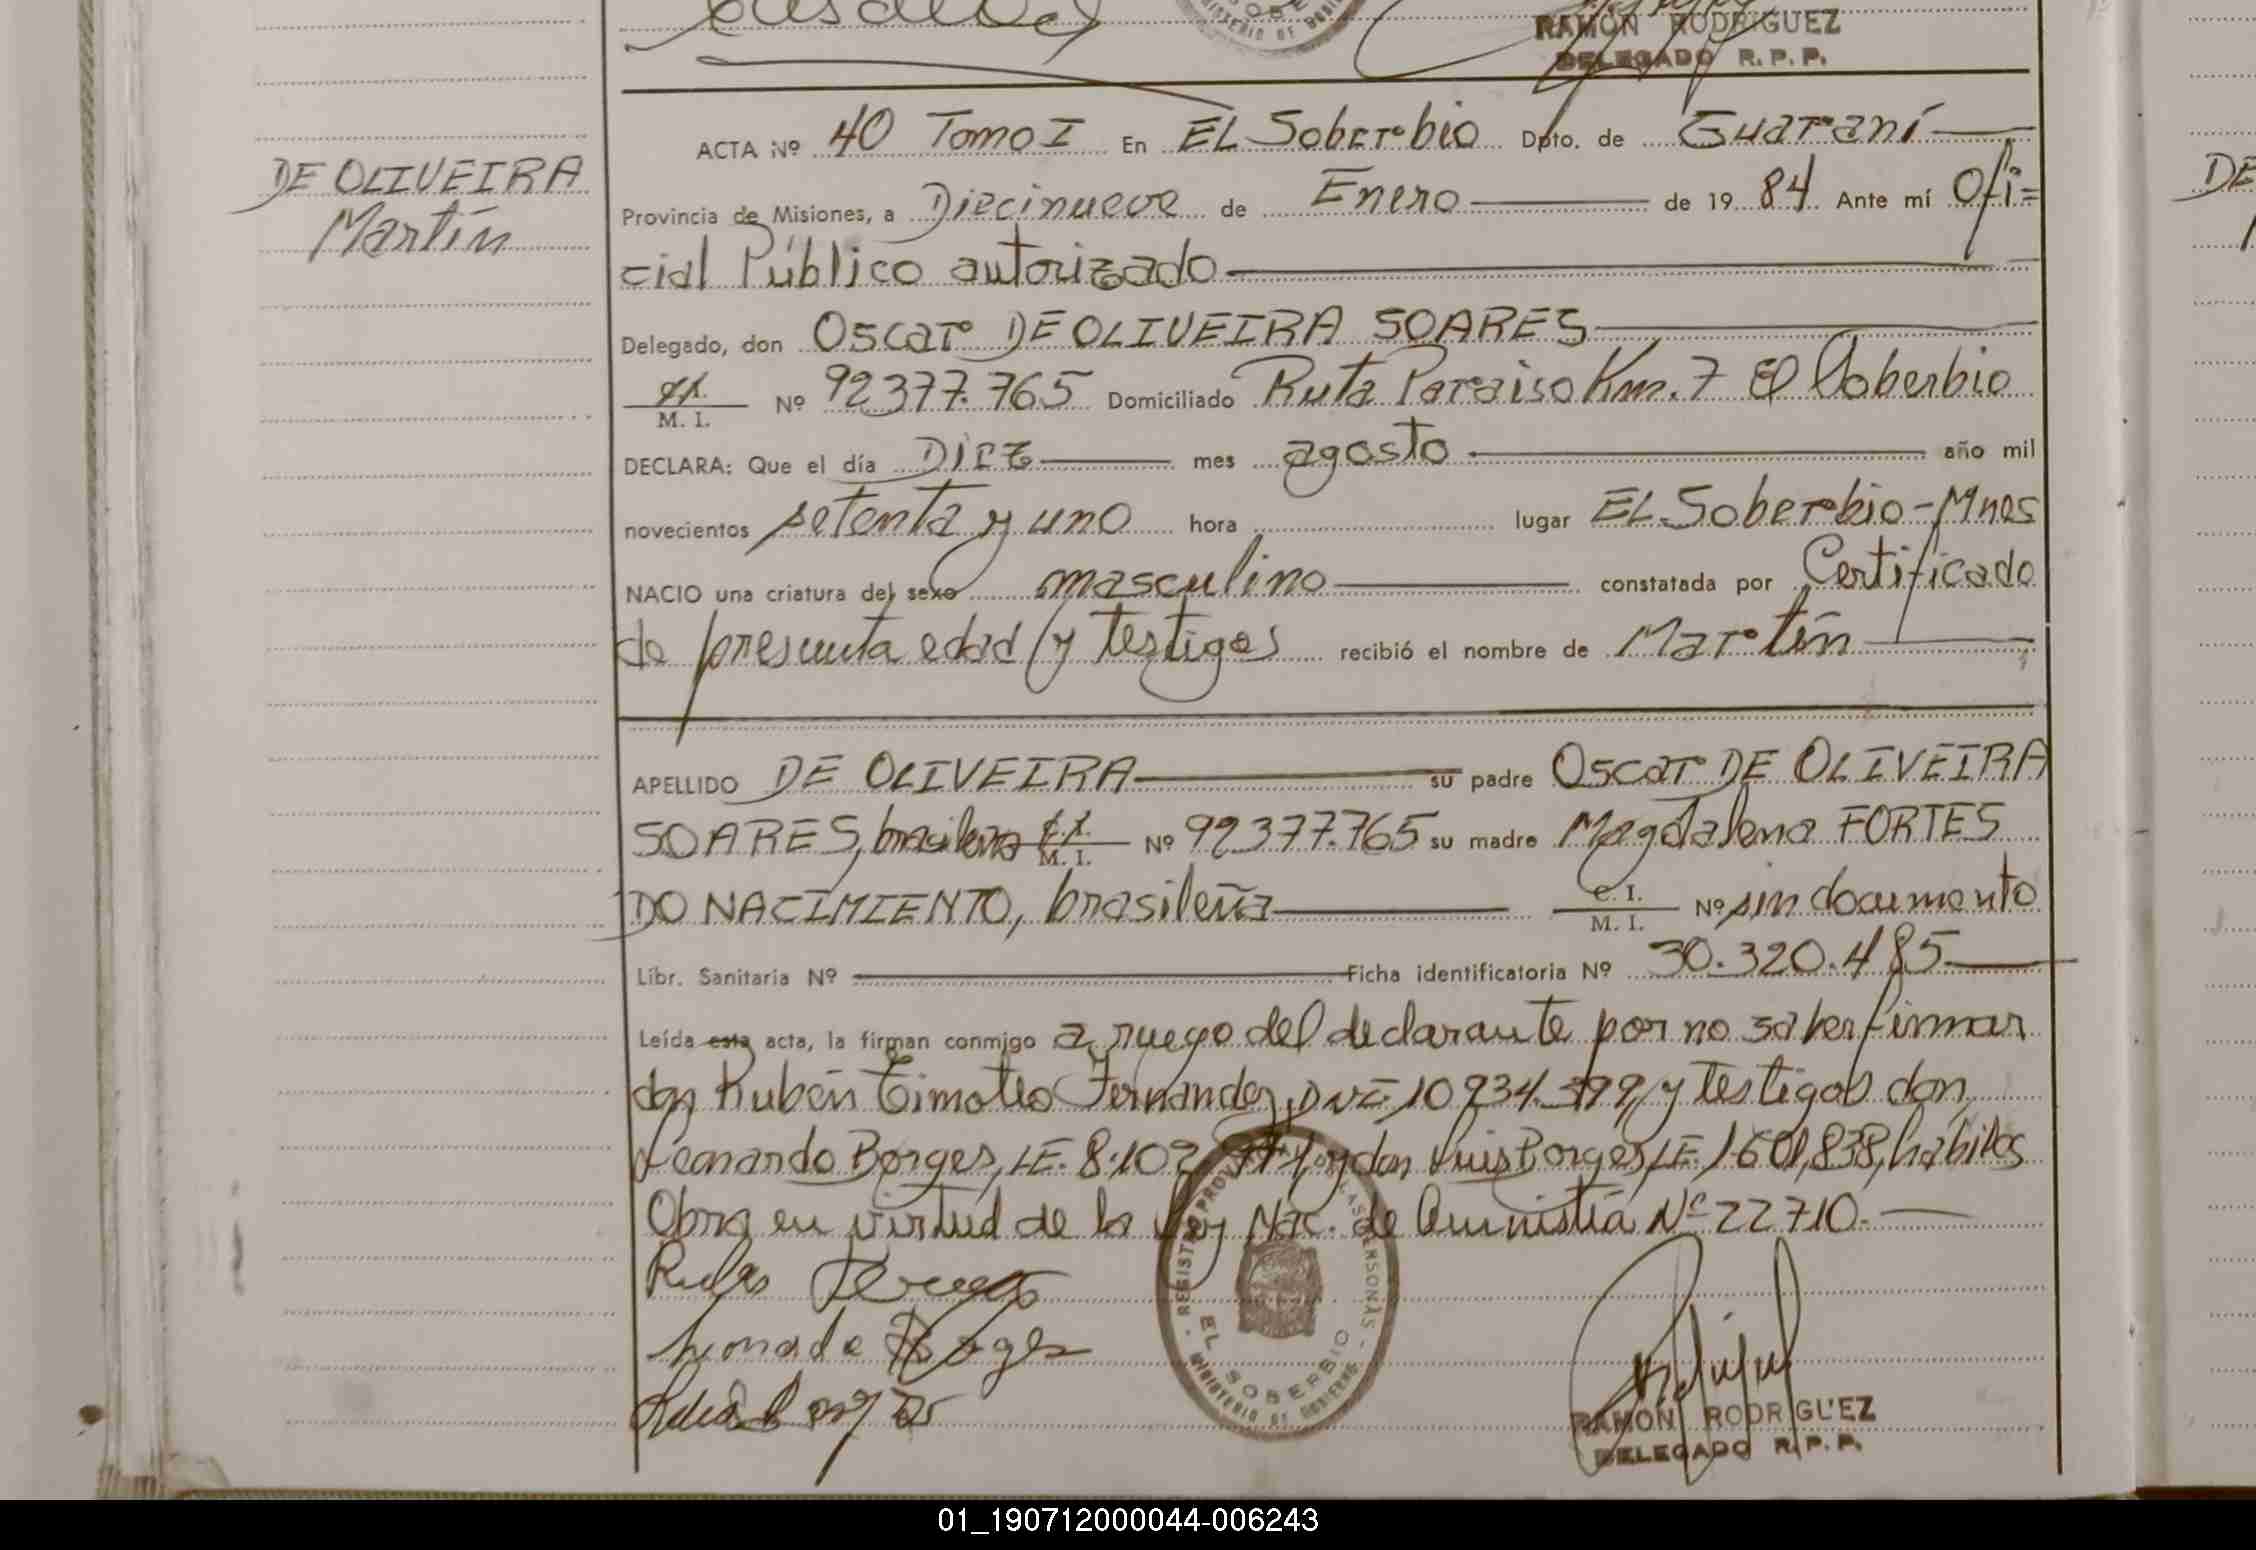 RAMON RODRIGUEZ
DELEGADO R. P. P.
DE OLIVEIRA
Martín
ACTA Nº 40 Tomo I En EL Soberbio Dpto. de Guaraní
Provincia de Misiones, a Diecinueve de Enero de 19 84 Ante mí Ofi=
cial Público autorizado
Delegado, don Oscar DE OLIVEIRA SOARES
M. I. Nº 92377.765 Domiciliado Ruta Paraiso Km. 7 El Soberbio
DECLARA: Que el día Diez mes agosto año mil
novecientos setenta y uno hora lugar EL Soberbio-Mnes
NACIO una criatura del sexo masculino constatada por Certificado
de presunta edad y testigos recibió el nombre de Martín
APELLIDO DE OLIVEIRA su padre Oscar DE OLIVEIRA
SOARES, brasilero C.I. M. I. Nº 92377.765 su madre Magdalena FORTES
DO NACIMIENTO, brasileña C. I. M. I. Nº sin documento
Libr. Sanitaria Nº Ficha identificatoria Nº 30.320.485
Leída esta acta, la firman conmigo a ruego del declarante por no saber firmar
don Rubén Timoteo Fernandez, DNI 10934.399, y testigos don
Leonardo Borges, LE. 8.102 y don Luis Borges, LE. 1601,838, habiles
Obra en virtud de la Ley Nac. de Amnistía Nº 22710.-
REGISTRO PROVINCIAL DE LAS PERSONAS
EL SOBERBIO
MINISTERIO DE GOBIERNO
RAMON RODRIGUEZ
DELEGADO R. P. P.
DE
01_190712000044-006243